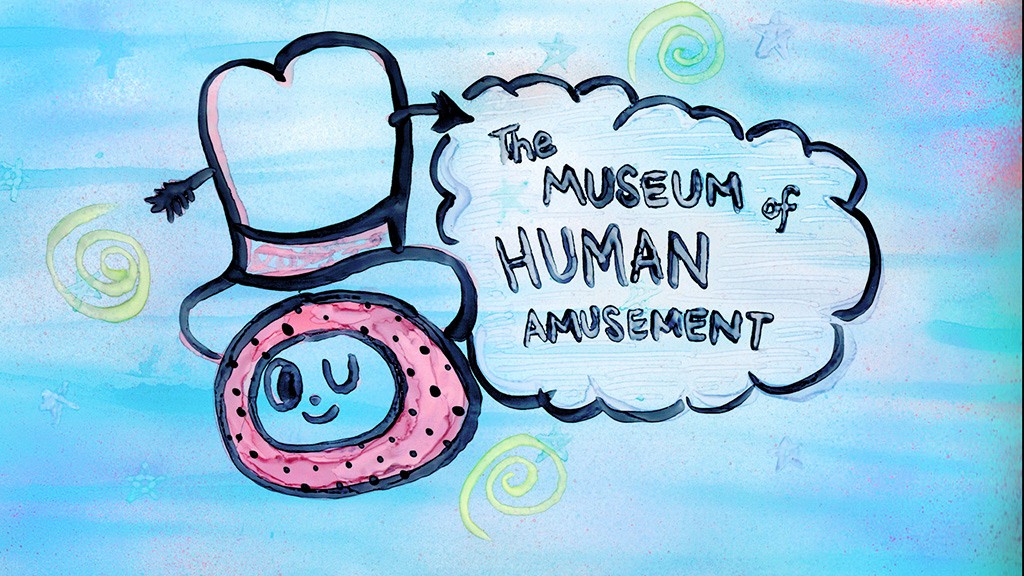 The
MUSEUM of
HUMAN
AMUSEMENT